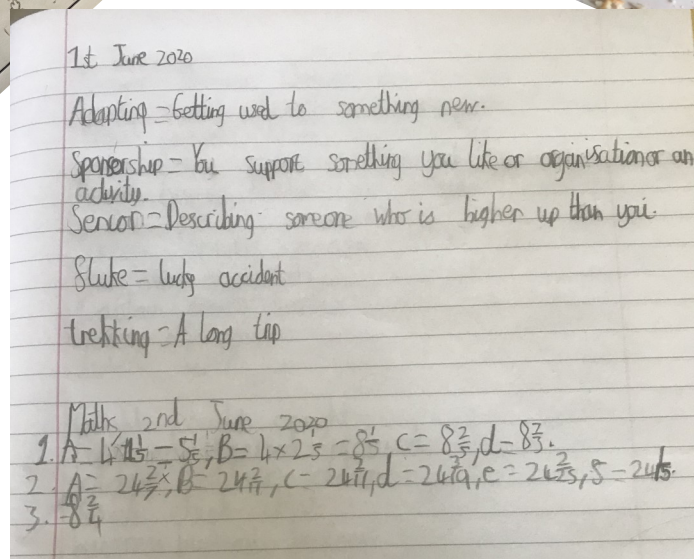 1st June 2020
Adapting = Getting used to something new.
Sponsership = You support something you like or organisation or an
activity.
Sencon = Describing someone who is higher up than you.
Fluke = lucky accident
trekking = A long trip
Maths 2nd June 2020
1. A = = 5 1/5, B = 4 x 2 1/5 = 8 1/5, C = 8 2/5, d = 8 2/5.
2. A = 24 B = 24 2/11, C = 24 d = 24 e = 24 2/25,
3. 8 2/4